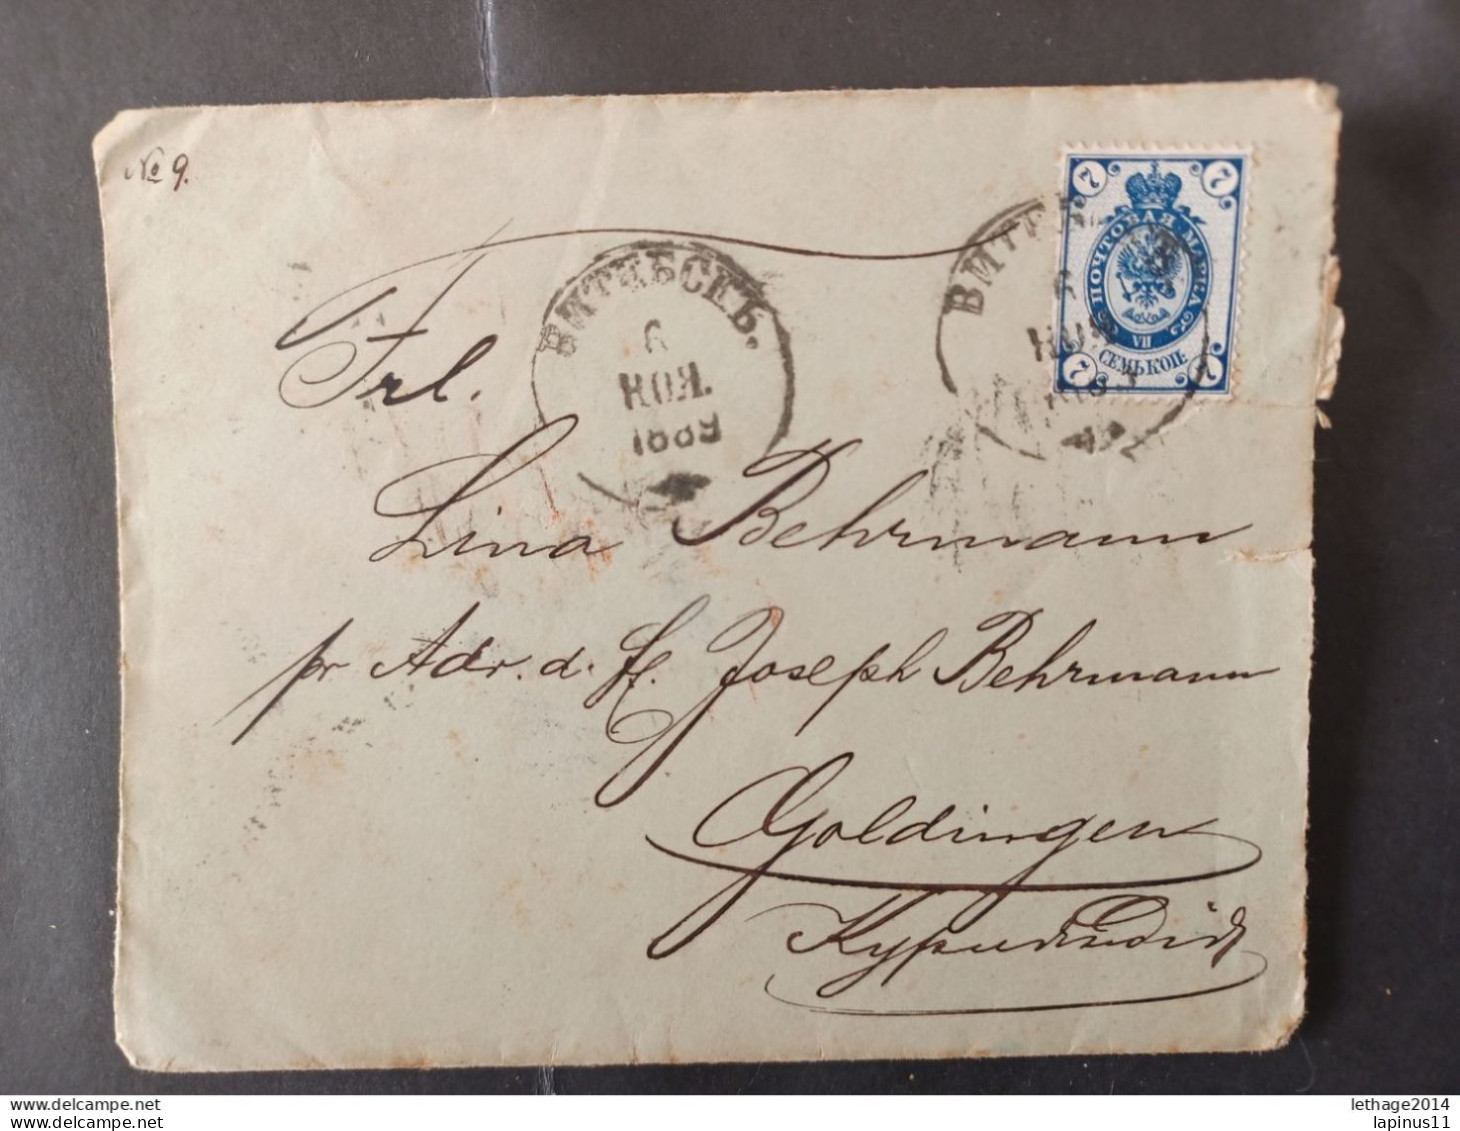 № 9.
7 7
ПОЧТОВАЯ МАРКА
VII
СЕМЬ КОП.
7 7
ВИТЕБСКЪ.
6
НОЯ.
1889
Frl.
Lina Behrmann
pr Adr. d. H. Joseph Behrmann
Goldingen
www.delcampe.net
www.delcampe.net
lethage2014
lapinus11